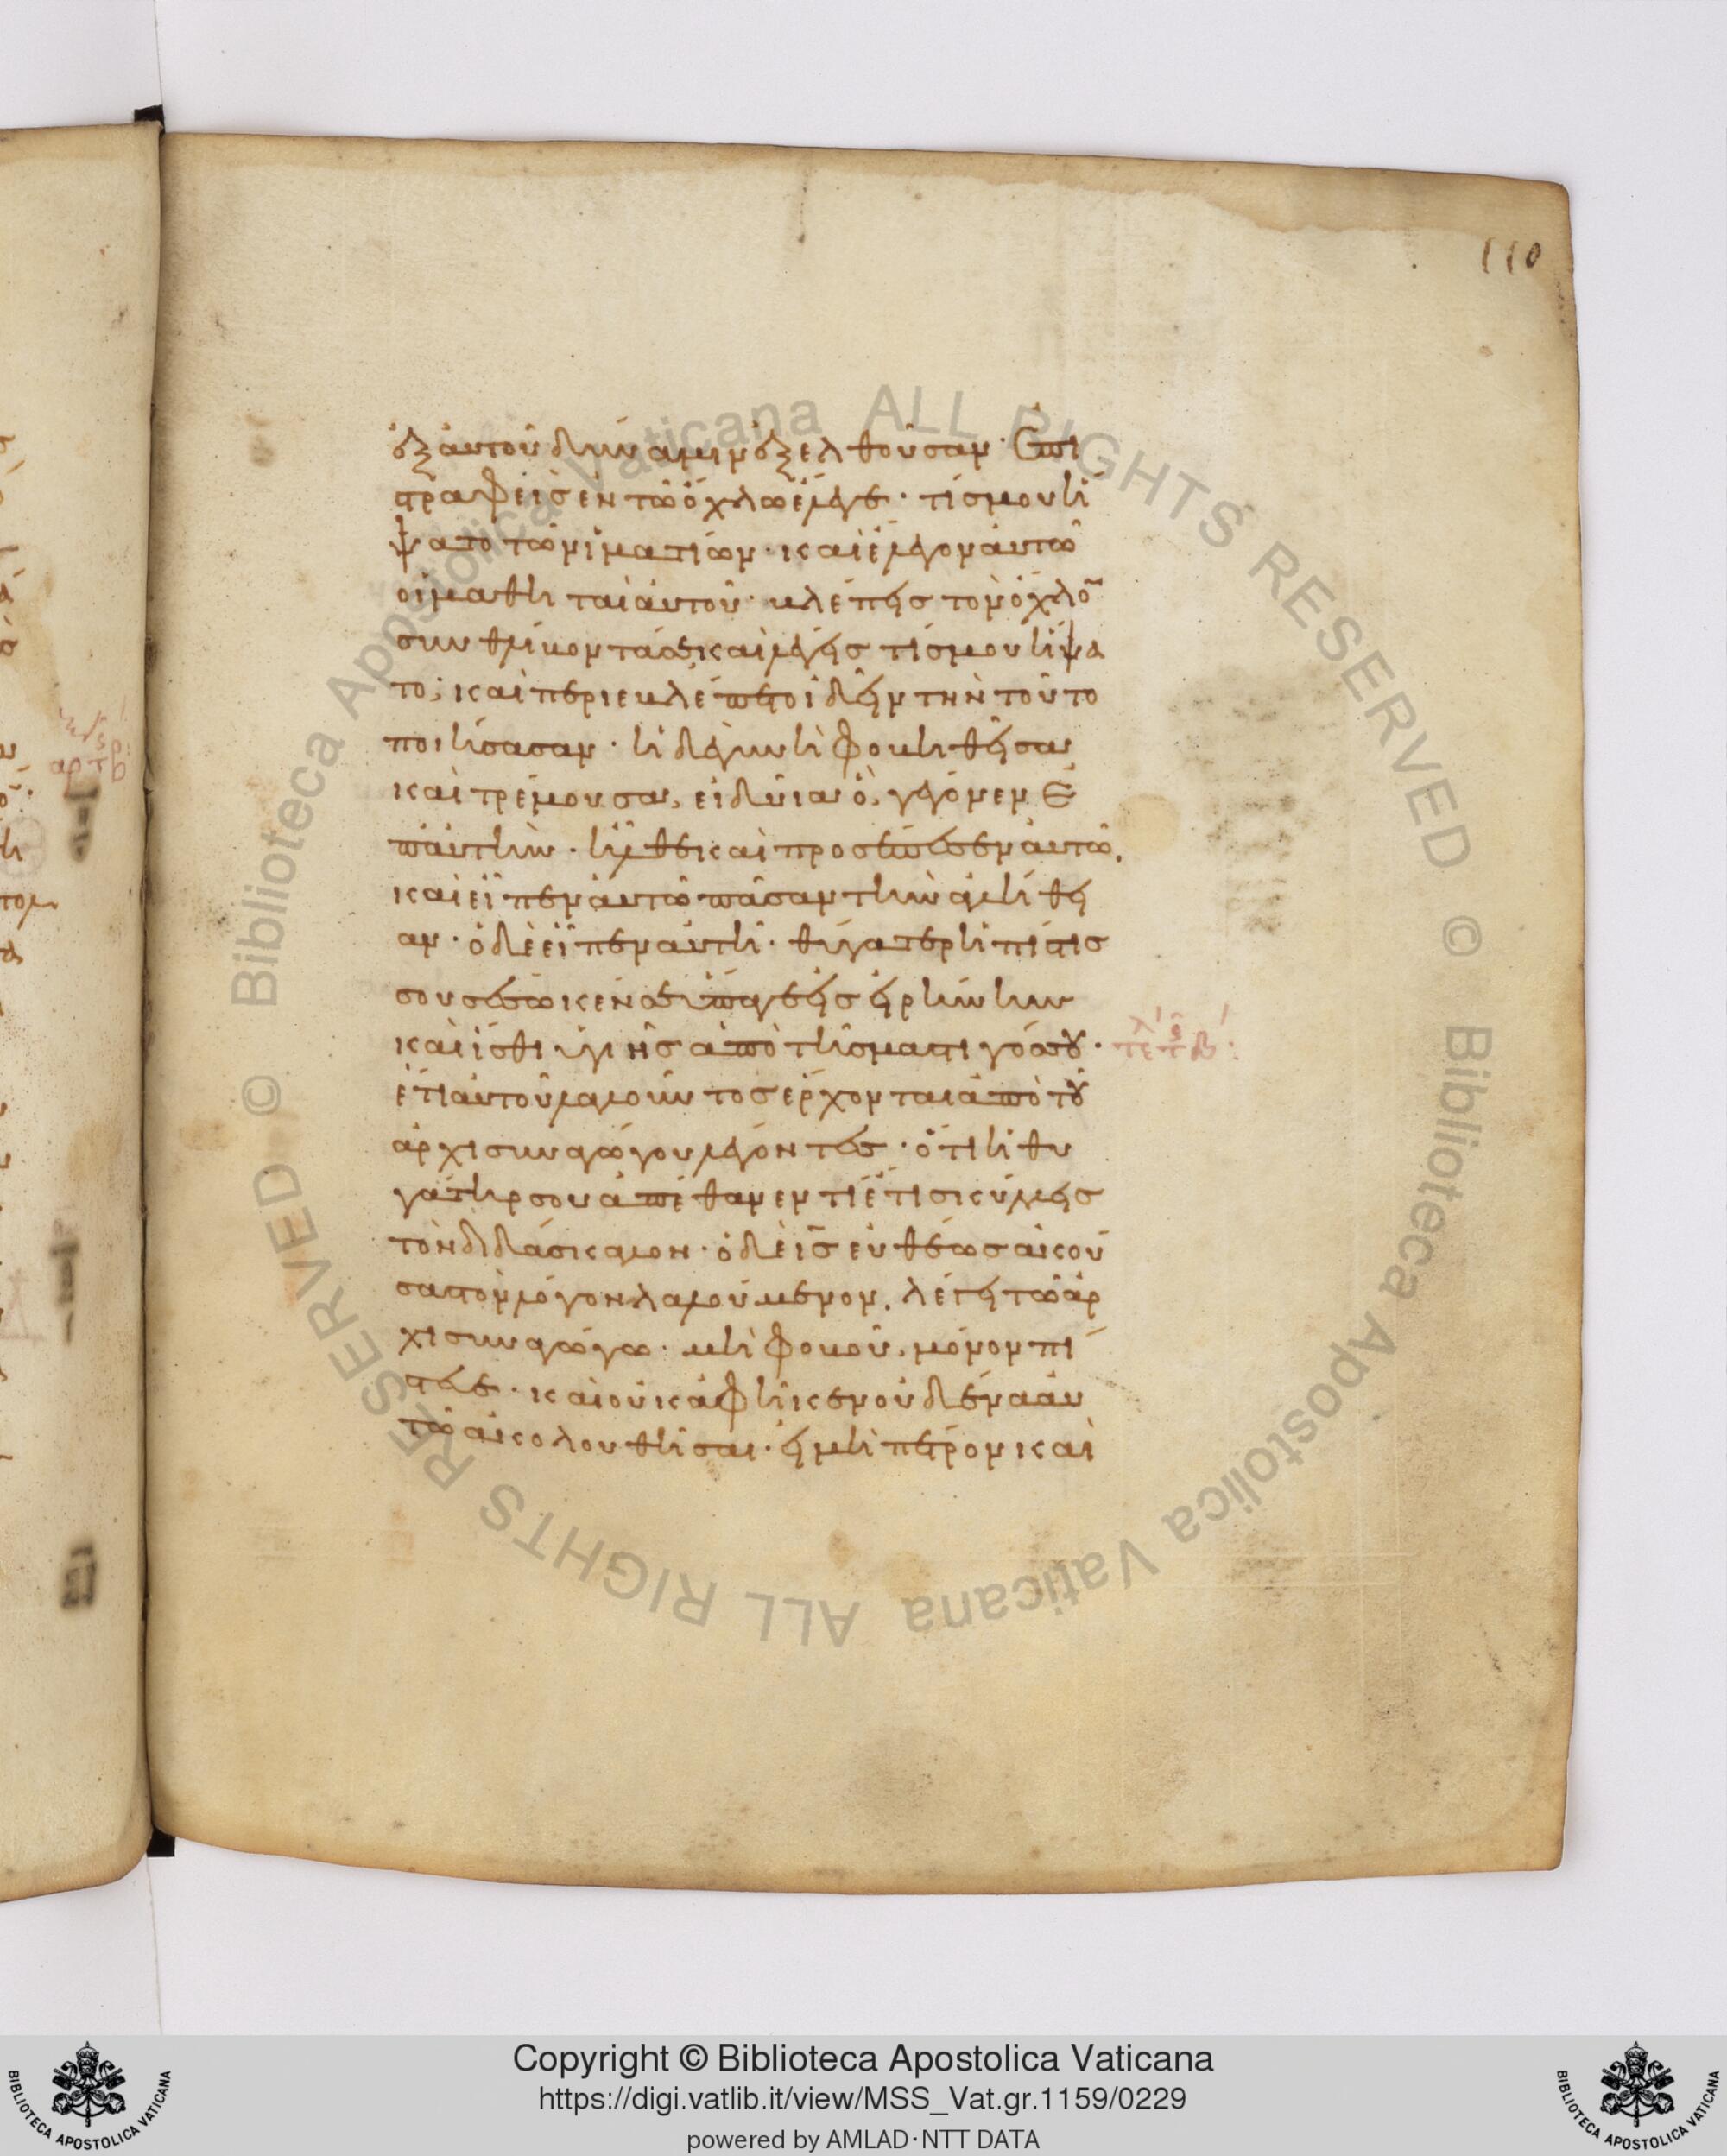 110
ἐξ αὐτοῦ δύναμιν ἐξελθοῦσαν· ἐπι
στραφεὶς ἐν τῶ ὄχλω ἔλεγε· τίς μου ἥ
ψατο τῶν ἱματίων· καὶ ἔλεγον αὐτῶ
οἱ μαθηταὶ αὐτοῦ· βλέπεις τὸν ὄχλο̅
συνθλίβοντά σε καὶ λέγεις τίς μου ἥψα
το; καὶ περιεβλέπετο ἰδεῖν τὴν τοῦτο
ποιήσασαν· ἡ δὲ γυνὴ φοβηθεῖσα
καὶ τρέμουσα, εἰδυῖα ὃ γέγονεν ἐ
π' αὐτὴν· ἦλθε καὶ προσέπεσεν αὐτῶ,
καὶ εἶπεν αὐτῶ πᾶσαν τὴν ἀλήθει
αν· ὁ δὲ εἶπεν αὐτῆ· θύγατερ ἡ πίστις
σου σέσωκέν σε ὕπαγε εἰς εἰρήνην
καὶ ἴσθι ὑγιὴς ἀπὸ τῆς μάστιγός σου·
ἔτι αὐτοῦ λαλοῦντος ἔρχονται ἀπὸ τοῦ
ἀρχισυναγώγου λέγοντες· ὅτι ἡ θυ
γάτηρ σου ἀπέθανεν τί ἔτι σκύλλεις
τὸν διδάσκαλον· ὁ δὲ ι̅ς̅ εὐθέως ἀκού
σας τὸν λόγον λαλούμενον, λέγει τῶ ἀρ
χισυναγώγω· μὴ φοβοῦ, μόνον πί
στευε· καὶ οὐκ ἀφῆκεν οὐδένα αὐ
τῶ ἀκολουθῆσαι· εἰ μὴ πέτρον καὶ
Copyright © Biblioteca Apostolica Vaticana
https://digi.vatlib.it/view/MSS_Vat.gr.1159/0229
powered by AMLAD·NTT DATA